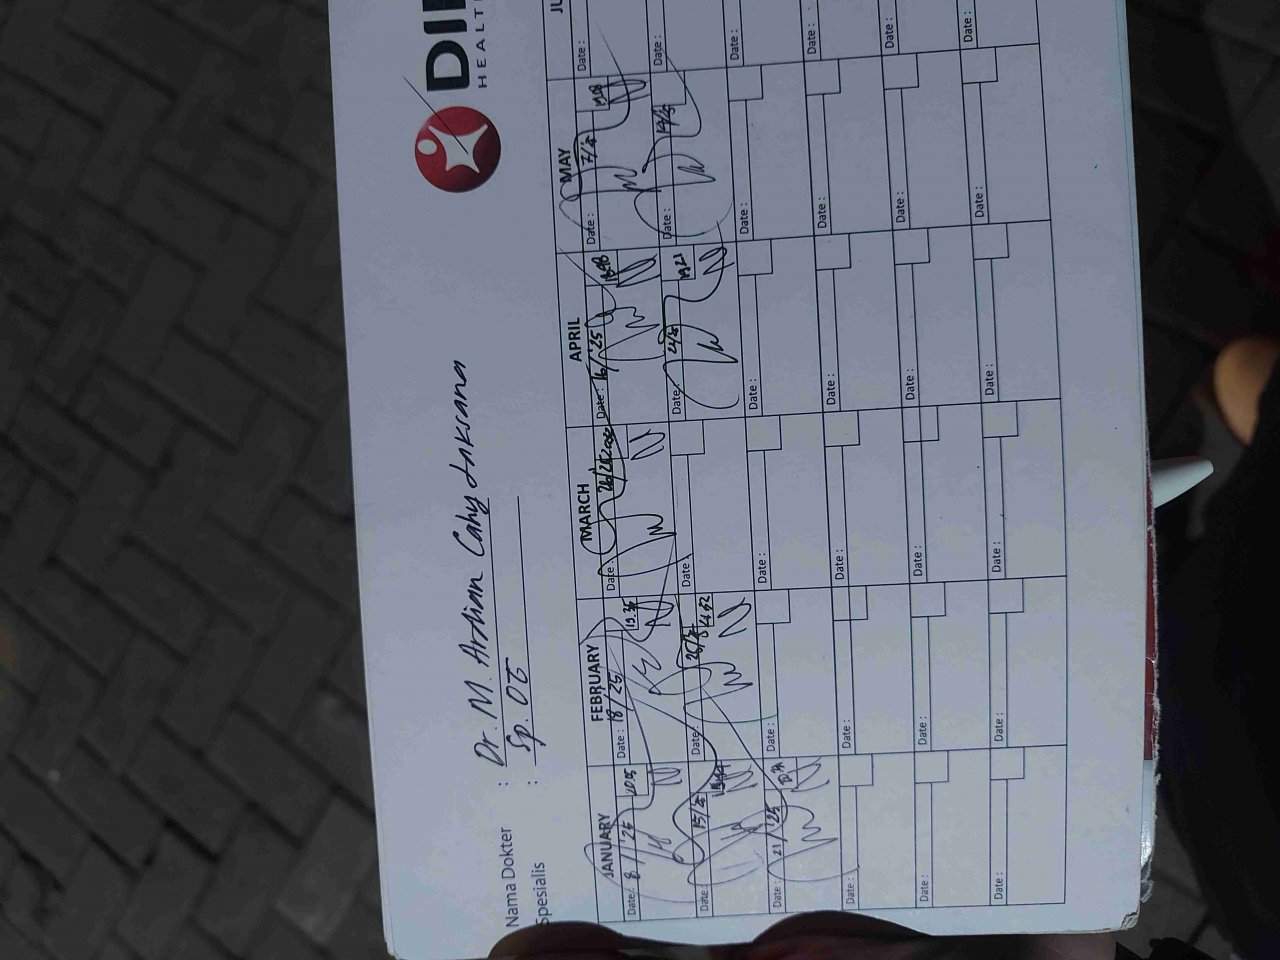 DIP
HEALT
Nama Dokter : Dr. M. Ardian Cahy Laksana
Spesialis : Sp. OT
JANUARY FEBRUARY MARCH APRIL MAY JU
Date: 8/1/'25 Date: 18/25 19.36 Date: 26/25 Date: 16/'25 Date: 7/5 Date:
Date: 15/1 Date: 26/2 14.52 Date: Date: 24/4 19.21 Date: 14/5 Date:
Date: 21/'25 Date: Date: Date: Date: Date:
Date: Date: Date: Date: Date: Date:
Date: Date: Date: Date: Date: Date:
Date: Date: Date: Date: Date: Date: